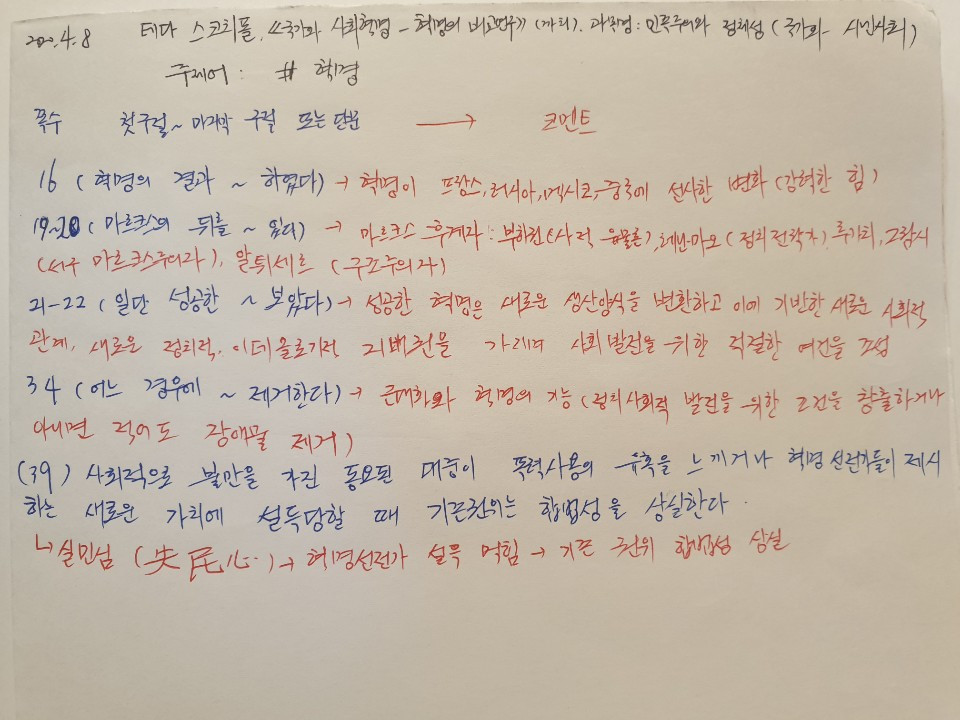 2020.4.8 테다 스코치폴, 《국가와 사회혁명 - 혁명의 비교연구》 (까치). 과목명: 민족주의와 정체성 (국가와 시민사회)
주제어 : # 혁명
쪽수 첫구절 ~ 마지막 구절 또는 단문 → 코멘트
16 (혁명의 결과 ~ 하였다) → 혁명이 프랑스, 러시아, 멕시코, 중국에 선사한 변화 (강력한 힘)
19~20 (마르크스의 뒤를 ~ 있다) → 마르크스 후계자 : 부하린(사적 유물론), 레닌·마오 (정치전략가) 루카치, 그람시
(서구 마르크스주의자), 알튀세르 (구조주의자)
21-22 (일단 성공한 ~ 보았다) → 성공한 혁명은 새로운 생산양식을 변환하고 이에 기반한 새로운 사회적
관계, 새로운 정치적, 이데올로기적 지배권을 가르며 사회발전을 위한 적절한 여건을 조성
34 (어느 경우에 ~ 제거한다) → 근대화와 혁명의 기능 (정치사회적 발전을 위한 조건을 창출하거나
아니면 적어도 장애물 제거)
(39) 사회적으로 불만을 가진 동요된 대중이 폭력사용의 유혹을 느끼거나 혁명선전가들이 제시
하는 새로운 가치에 설득당할 때 기존권위는 합법성을 상실한다.
↳ 실민심 (失民心) → 혁명선전가 설득 먹힘 → 기존 권위 합법성 상실